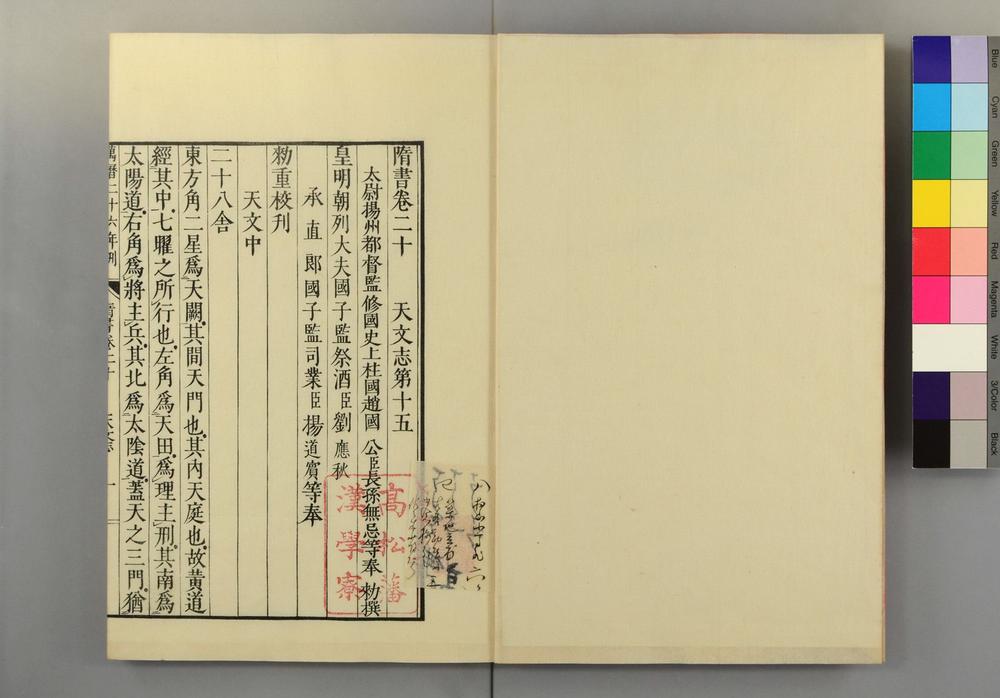 隋書卷二十 天文志第十五
太尉揚州都督監修國史上柱國趙國公臣長孫無忌等奉 勑撰
皇明朝列大夫國子監祭酒臣劉應秋
承直郎國子監司業臣楊道賓等奉
勑重校刊
天文中
二十八舍
東方角二星爲天闕其間天門也其內天庭也故黄道
經其中七曜之所行也左角爲天田爲理主刑其南爲
太陽道右角爲將主兵其北爲太陰道蓋天之三門猶
萬曆二十六年刊
高松藩
漢學寮
Blue
Cyan
Green
Yellow
Red
Magenta
White
3/Color
Black